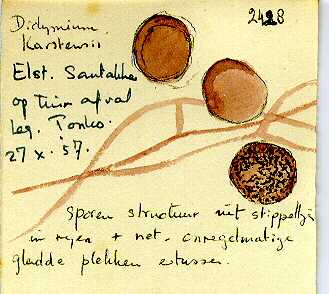 2428
Didymium
Karstensii
Elst. Santakker
op tuin afval
leg. Ponko.
27 x. '57.
Sporen structuur uit stippeltjes
in rijen + net. onregelmatige
gladde plekken ertussen.